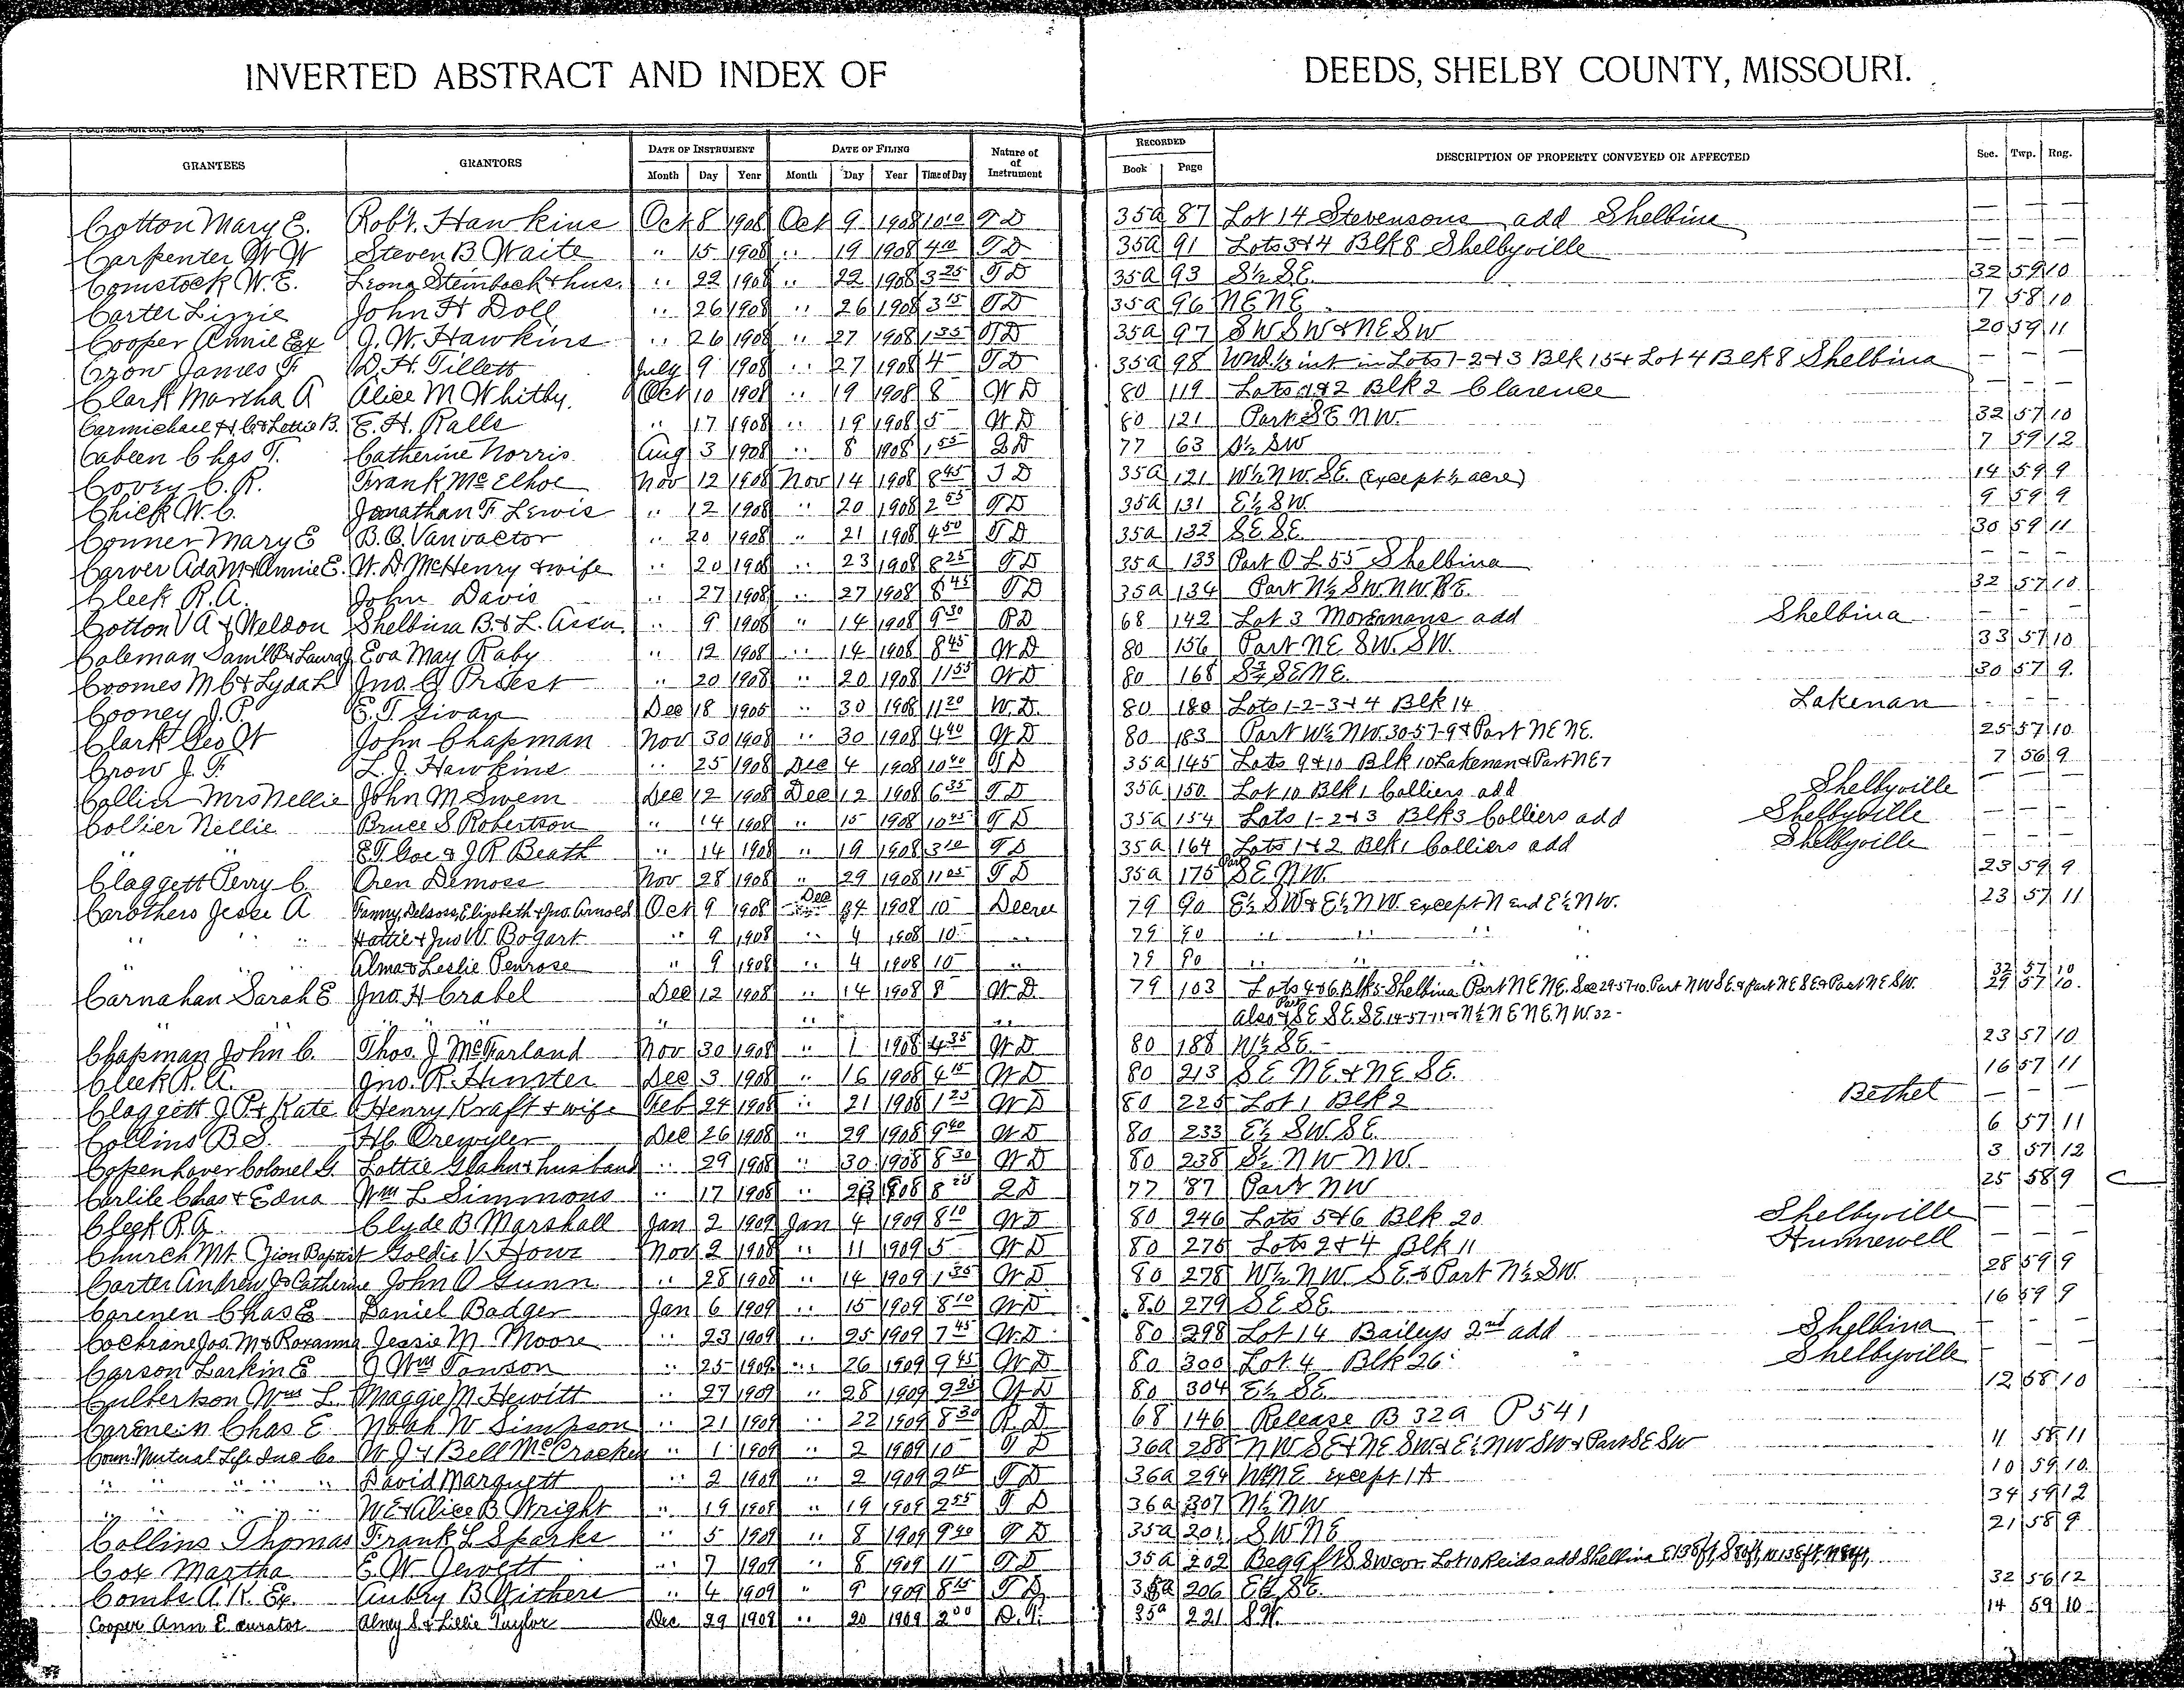 INVERTED ABSTRACT AND INDEX OF DEEDS, SHELBY COUNTY, MISSOURI.
GRANTEES GRANTORS DATE OF INSTRUMENT DATE OF FILING Nature of of Instrument RECORDED DESCRIPTION OF PROPERTY CONVEYED OR AFFECTED Sec. Twp. Rng.
Month Day Year Month Day Year Time of Day Book Page
Cotton Mary E. Rob't. Hawkins Oct 8 1908 Oct 9 1908 10 10 T D 35a 87 Lot 14 Stevensons add Shelbina — — —
Carpenter W W Steven B Waite " 15 1908 " 19 1908 4 10 T D 35a 91 Lots 3+4 Blk 8 Shelbyville — — —
Comstock W. E. Leona Steinbock + hus. " 22 1908 " 22 1908 3 25 T D 35a 93 S½ S.E. 32 59 10
Carter Lizzie John H Doll " 26 1908 " 26 1908 3 15 T D 35a 96 NE NE 7 58 10
Cooper Annie Ex J. W. Hawkins " 26 1908 " 27 1908 1 35 T D 35a 97 SW SW + NE SW 20 59 11
Crow James F W. H. Tillett July 9 1908 " 27 1908 4 — T D 35a 98 Und. ⅓ int in Lots 1-2+3 Blk 15+ Lot 4 Blk 8 Shelbina — — —
Clark Martha A Alice M Whitby. Oct 10 1908 " 19 1908 8 — W D 80 119 Lots 1+2 Blk 2 Clarence — — —
Carmichael + Lottie B. E. H. Ralls " 17 1908 " 19 1908 5 — W D 80 121 Part SE NW. 32 57 10
Cabeen Chas T. Catherine Norris Aug 3 1908 " 8 1908 1 55 2 D 77 63 S½ SW 7 59 12
Covey C. R. Frank McElhoe Nov 12 1908 Nov 14 1908 8 45 T D 35a 121 W½ N W. SE. (except ½ acre) 14 59 9
Chick W. C. Jonathan F Lewis " 12 1908 " 20 1908 2 55 T D 35a 131 E½ SW. 9 59 9
Conner Mary E B. O. Vanvactor " 20 1908 " 21 1908 4 50 T D 35a 132 SE SE. 30 59 11
Carver Ada M + Annie E. W. D. McHenry + wife " 20 1908 " 23 1908 8 25 T D 35a 133 Part O L 55 Shelbina — — —
Cleek R. A. John Davis " 27 1908 " 27 1908 8 45 T D 35a 134 Part N½ SW. NW. 32 57 10
Cotton V A + Weldon Shelbina B + L. Assn. " 9 1908 " 14 1908 9 30 R D 68 142 Lot 3 add Shelbina — — —
Coleman Saml B + Laura J Eva May Raby " 12 1908 " 14 1908 8 45 W D 80 156 Part NE SW. SW. 33 57 10
Coomes M C + Lyda L Jno. G Priest " 20 1908 " 20 1908 11 55 W D 80 168 SE NE. 30 57 9.
Cooney J. P. E. T. Sivay Dec 18 1905 " 30 1908 11 20 W. D. 80 180 Lots 1-2-3+4 Blk 14 Lakenan — — —
Clark Geo W John Chapman Nov 30 1908 " 30 1908 4 40 W D 80 183 Part W½ NW. 30-57-9 + Part NE NE. 25 57 10
Crow J. F. L. J. Hawkins " 25 1908 Dec 4 1908 10 40 T D 35a 145 Lots 9+10 Blk 10 Lakenan + Part NE 7 7 56 9
Collier Mrs Nellie John M Swem Dec 12 1908 Dec 12 1908 6 35 T D 35a 150 Lot 10 Blk 1 Colliers add Shelbyville — — —
Collier Nellie Bruce S Robertson " 14 1908 " 15 1908 10 25 T D 35a 154 Lots 1-2+3 Blk 3 Colliers add Shelbyville — — —
" " E T Coe + J R Beath " 14 1908 " 19 1908 3 10 T D 35a 164 Lots 1+2 Blk 1 Colliers add Shelbyville — — —
Claggett Perry C. Oren Demoss Nov 28 1908 " 29 1908 11 05 T D 35a 175 Part SE NW. 23 59 9
Carothers Jesse A Fanny, Delsora, Elizabeth + Jno. Arnold Oct 9 1908 Dec 4 1908 10 — Decree 79 90 E½ SW + E½ NW. except N end E½ NW. 23 57 11
" " Hattie + Jno W. Bogart " 9 1908 " 4 1908 10 — " 79 90 " " "
" " Alma + Leslie Penrose " 9 1908 " 4 1908 10 — " 79 90 " "
Carnahan Sarah E Jno. H Crabel Dec 12 1908 " 14 1908 8 — W D 79 103 Lots 4+6 Blk 5 Shelbina Part NE NE. Sec 29-57-10. Part NW SE. + part NE SE + Part NE SW. 32 57 10 29 57 10.
" " " " Also Part SE SE. SE. 14-57-11 + N½ NE NE. NW. 32 -
Chapman John C. Thos. J McFarland Nov 30 1908 " 1 1908 4 35 W D 80 188 W½ SE. 23 57 10
Cleek R. A. Jno. R. Hunter Dec 3 1908 " 16 1908 4 15 W D 80 213 SE NE. + NE SE. 16 57 11
Claggett J P. + Kate Henry Kraft + wife Feb 24 1908 " 21 1908 1 25 W D 80 225 Lot 1 Blk 2 Bethel — — —
Collins B S. H C Drewyler Dec 26 1908 " 29 1908 9 40 W D 80 233 E½ SW. SE. 6 57 11
Copenhaver Colonel G. Lottie Glahn + husband " 29 1908 " 30 1908 8 30 W D 80 238 S½ NW NW. 3 57 12
Carlile Chas + Edna Wm L Simmons " 17 1908 " 23 1908 8 25 2 D 77 87 Part NW 25 58 9 C
Cleek R. A. Clyde B Marshall Jan 2 1909 Jan 4 1909 8 10 W D 80 246 Lots 5+6 Blk 20 Shelbyville — — —
Church Mt. Zion Baptist Goldie V. Howe Nov 2 1908 " 11 1909 5 — W D 80 275 Lots 2+4 Blk 11 Hunnewell — — —
Carter Andrew J + Catherine John O Gunn " 28 1908 " 14 1909 1 35 W D 80 278 W½ NW. SE. + Part N½ SW. 28 59 9
Carenen Chas E Daniel Badger Jan 6 1909 " 15 1909 8 10 W D 80 279 SE SE 16 59 9
Cochrane Jos. M + Roxanna Jessie M. Moore " 23 1909 " 25 1909 7 45 W. D. 80 298 Lot 14 Baileys 2nd add Shelbina — — —
Carson Larkin E J Wm Towson " 25 1909 " 26 1909 9 45 W D 80 300 Lot 4 Blk 26 Shelbyville — — —
Culbertson Wm L. Maggie M. Hewitt " 27 1909 " 28 1909 9 25 W D 80 304 E½ SE 12 58 10
Carenein Chas E Noah W Simpson " 21 1909 " 22 1909 8 30 R. D 68 146 Release B 32a P 541
Conn. Mutual Life Ins Co W J + Bell McCracken " 1 1909 " 2 1909 10 — T D 36a 288 NW SE + NE SW. + E½ NW SW + Part SE SW 11 58 11
" " " " David Marquett " 2 1909 " 2 1909 2 15 T D 36a 294 W½ NE except 1 A 10 59 10.
" " " " W E + Alice B. Wright " 19 1909 " 19 1909 2 55 T D 36a 307 N½ NW 34 59 12
Collins Thomas Frank L Sparks " 5 1909 " 8 1909 9 40 T D 35a 201 SW NE 21 58 9
Cox Martha E. W. Jewett " 7 1909 " 8 1909 11 — T D 35a 202 Beg ft S SW cor. Lot 10 Reids add Shelbina E 138 ft, S 80 ft, W 138 ft,
Combs A. R. Ex. Aubry B Githers " 4 1909 " 9 1909 8 15 T D 35a 206 E½ SE. 32 56 12
Cooper Ann E curator Alney S. + Lillie Taylor Dec 29 1908 " 20 1909 2 00 D. T. 35a 221 S.W. 14 59 10